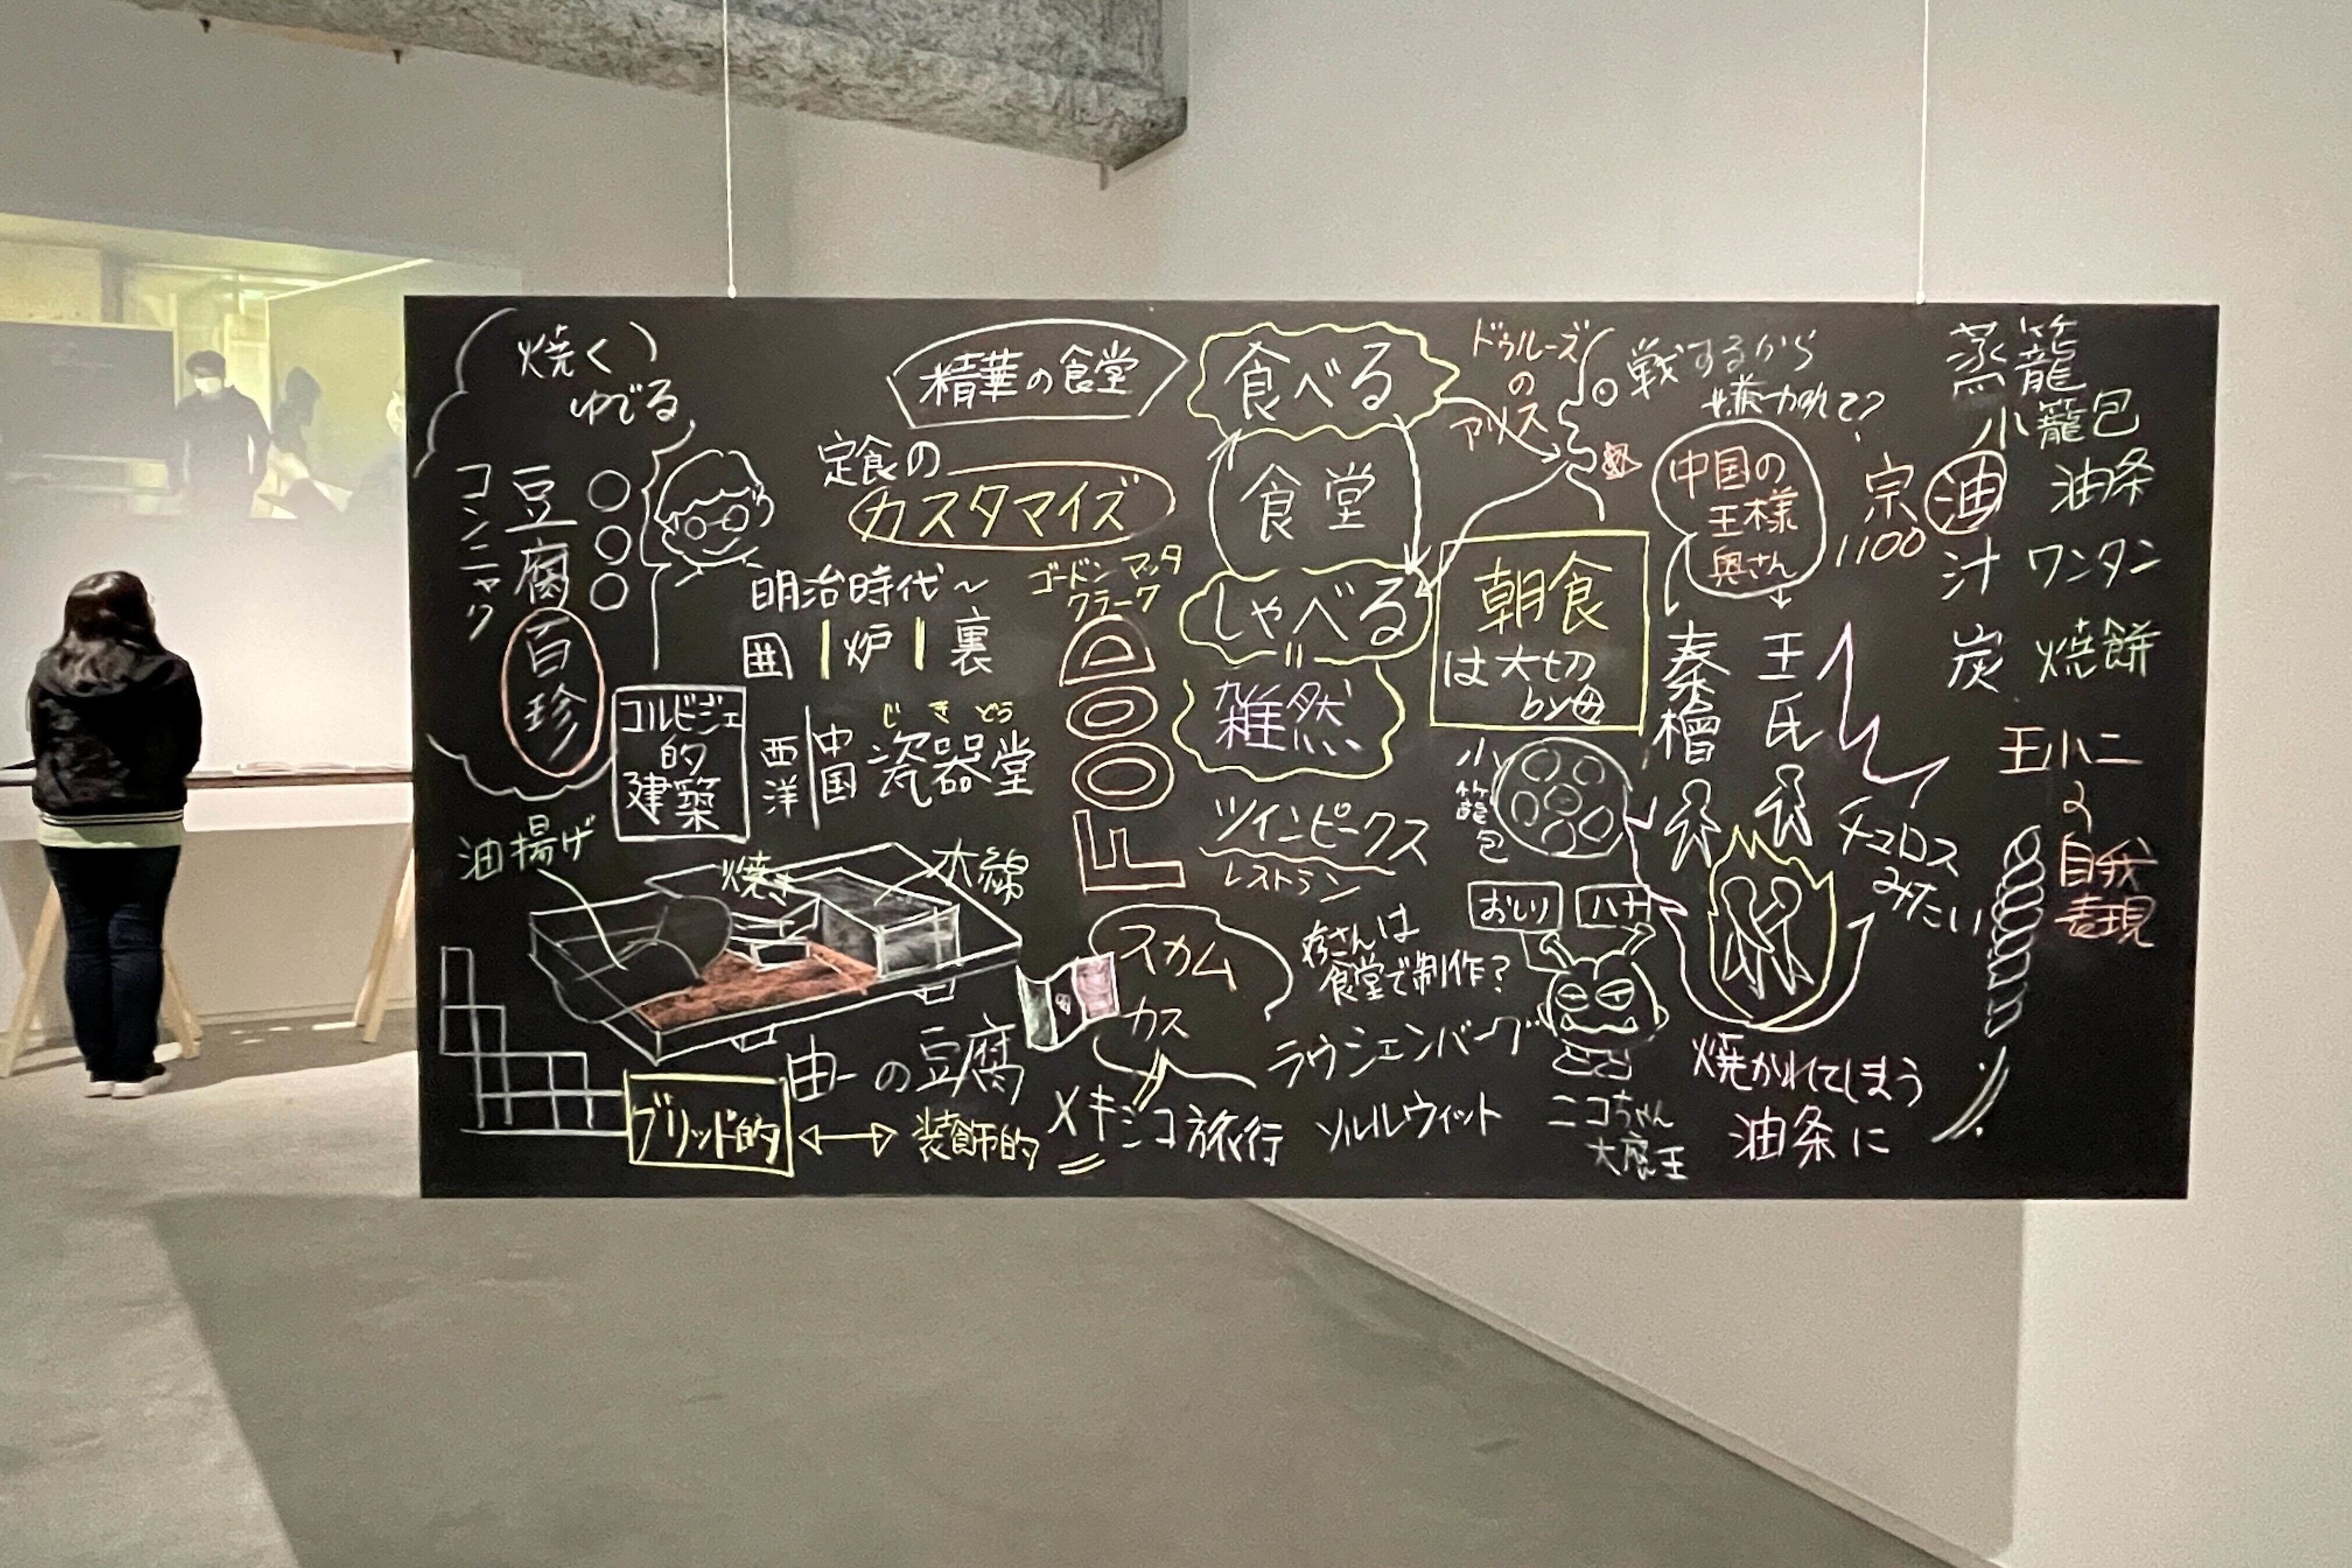 焼く
ゆでる
コンニャク
豆腐
百珍
コルビジェ
的
建築
精華の食堂
定食の
カスタマイズ
明治時代〜
囲 炉 裏
西洋
中国
じきどう
瓷器堂
油揚げ
焼き
木綿
の豆腐
グリッド的
装飾的
ゴードン マッタ
クラーク
FOOD
食べる
食堂
しゃべる
雑然
ツインピークス
レストラン
スカム
カス
メキシコ旅行
さんは
食堂で制作?
ラウシェンバーグ
ソルルウィット
ドゥルーズ
の
アリス
戦するから
嫌われて?
朝食
は大切
by母
小籠包
おしり
ハナ
ニコちゃん
大魔王
中国の
王様
奥さん
秦檜
王氏
宗
1100
焼かれてしまう
油条に
チュロス
みたい
蒸籠
小籠包
油
油条
汁 ワンタン
炭 焼餅
王小二
の
自我
表現